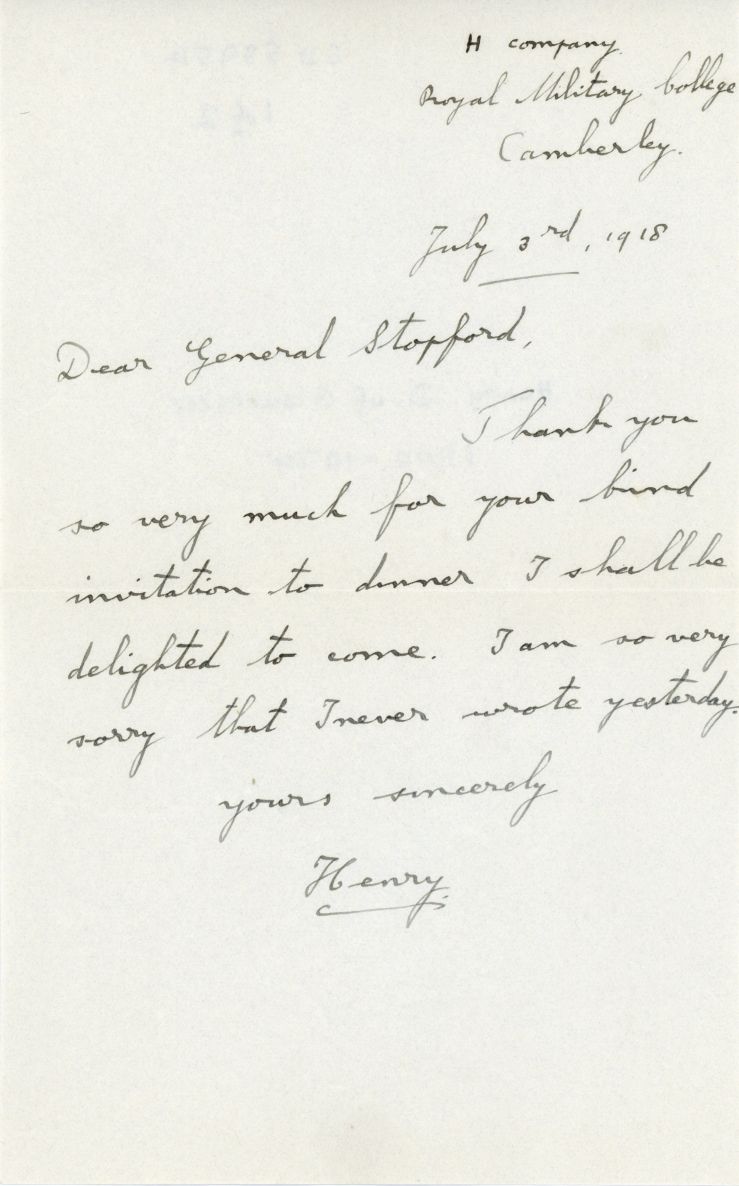 H company
Royal Military College
Camberley.
July 3rd, 1918
Dear General Stopford,
Thank you
so very much for your kind
invitation to dinner I shall be
delighted to come. I am so very
sorry that I never wrote yesterday.
yours sincerely
Henry